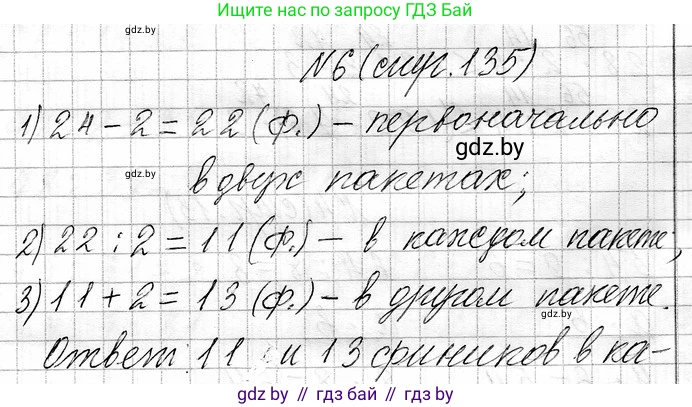 Ищите нас по запросу ГДЗ Бай
gdz.by
№6 (стр. 135)
1) 24 - 2 = 22 (ф.) - первоначально
gdz.by
gdz.by
в двух пакетах;
2) 22 : 2 = 11 (ф.) - в каждом пакете;
3) 11 + 2 = 13 (ф.) - в другом пакете.
gdz.by
Ответ: 11 и 13 фиников в ка-
gdz.by // гдз бай // gdz.by // гдз бай